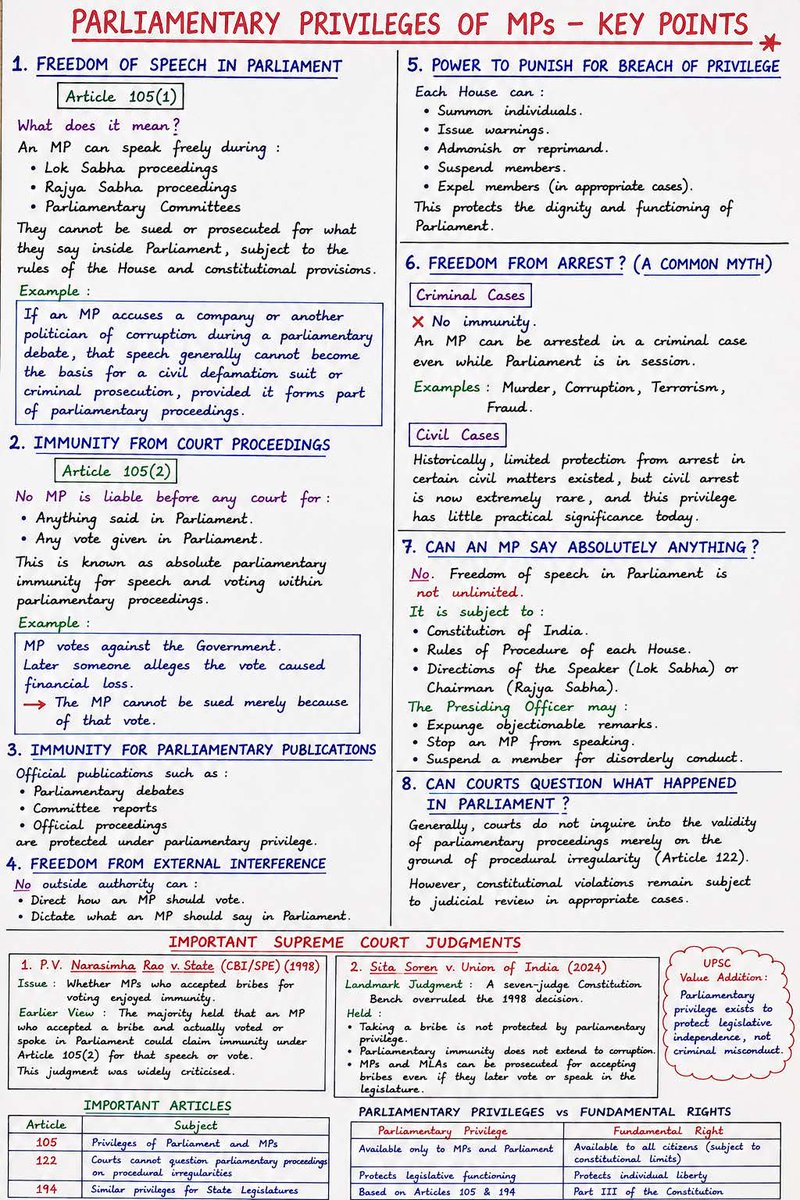 PARLIAMENTARY PRIVILEGES OF MPs – KEY POINTS *
1. FREEDOM OF SPEECH IN PARLIAMENT
Article 105(1)
What does it mean?
An MP can speak freely during :
• Lok Sabha proceedings
• Rajya Sabha proceedings
• Parliamentary Committees
They cannot be sued or prosecuted for what
they say inside Parliament, subject to the
rules of the House and constitutional provisions.
Example :
If an MP accuses a company or another
politician of corruption during a parliamentary
debate, that speech generally cannot become
the basis for a civil defamation suit or
criminal prosecution, provided it forms part
of parliamentary proceedings.
2. IMMUNITY FROM COURT PROCEEDINGS
Article 105(2)
No MP is liable before any court for :
• Anything said in Parliament.
• Any vote given in Parliament.
This is known as absolute parliamentary
immunity for speech and voting within
parliamentary proceedings.
Example :
MP votes against the Government.
Later someone alleges the vote caused
financial loss.
→ The MP cannot be sued merely because
of that vote.
3. IMMUNITY FOR PARLIAMENTARY PUBLICATIONS
Official publications such as :
• Parliamentary debates
• Committee reports
• Official proceedings
are protected under parliamentary privilege.
4. FREEDOM FROM EXTERNAL INTERFERENCE
No outside authority can :
• Direct how an MP should vote.
• Dictate what an MP should say in Parliament.
5. POWER TO PUNISH FOR BREACH OF PRIVILEGE
Each House can :
• Summon individuals.
• Issue warnings.
• Admonish or reprimand.
• Suspend members.
• Expel members (in appropriate cases).
This protects the dignity and functioning of
Parliament.
6. FREEDOM FROM ARREST? (A COMMON MYTH)
Criminal Cases
✗ No immunity.
An MP can be arrested in a criminal case
even while Parliament is in session.
Examples : Murder, Corruption, Terrorism,
Fraud.
Civil Cases
Historically, limited protection from arrest in
certain civil matters existed, but civil arrest
is now extremely rare, and this privilege
has little practical significance today.
7. CAN AN MP SAY ABSOLUTELY ANYTHING?
No. Freedom of speech in Parliament is
not unlimited.
It is subject to :
• Constitution of India.
• Rules of Procedure of each House.
• Directions of the Speaker (Lok Sabha) or
Chairman (Rajya Sabha).
The Presiding Officer may :
• Expunge objectionable remarks.
• Stop an MP from speaking.
• Suspend a member for disorderly conduct.
8. CAN COURTS QUESTION WHAT HAPPENED
IN PARLIAMENT ?
Generally, courts do not inquire into the validity
of parliamentary proceedings merely on the
ground of procedural irregularity (Article 122).
However, constitutional violations remain subject
to judicial review in appropriate cases.
IMPORTANT SUPREME COURT JUDGMENTS
1. P.V. Narasimha Rao v. State (CBI/SPE) (1998)
Issue : Whether MPs who accepted bribes for
voting enjoyed immunity.
Earlier View : The majority held that an MP
who accepted a bribe and actually voted or
spoke in Parliament could claim immunity under
Article 105(2) for that speech or vote.
This judgment was widely criticised.
2. Sita Soren v. Union of India (2024)
Landmark Judgment : A seven-judge Constitution
Bench overruled the 1998 decision.
Held :
• Taking a bribe is not protected by parliamentary
privilege.
• Parliamentary immunity does not extend to corruption.
• MPs and MLAs can be prosecuted for accepting
bribes even if they later vote or speak in the
legislature.
UPSC
Value Addition :
Parliamentary
privilege exists to
protect legislative
independence, not
criminal misconduct.
IMPORTANT ARTICLES
Article Subject
105 Privileges of Parliament and MPs
122 Courts cannot question parliamentary proceedings
on procedural irregularities
194 Similar privileges for State Legislatures
PARLIAMENTARY PRIVILEGES vs FUNDAMENTAL RIGHTS
Parliamentary Privilege Fundamental Right
Available only to MPs and Parliament Available to all citizens (subject to
constitutional limits)
Protects legislative functioning Protects individual liberty
Based on Articles 105 & 194 Part III of the Constitution